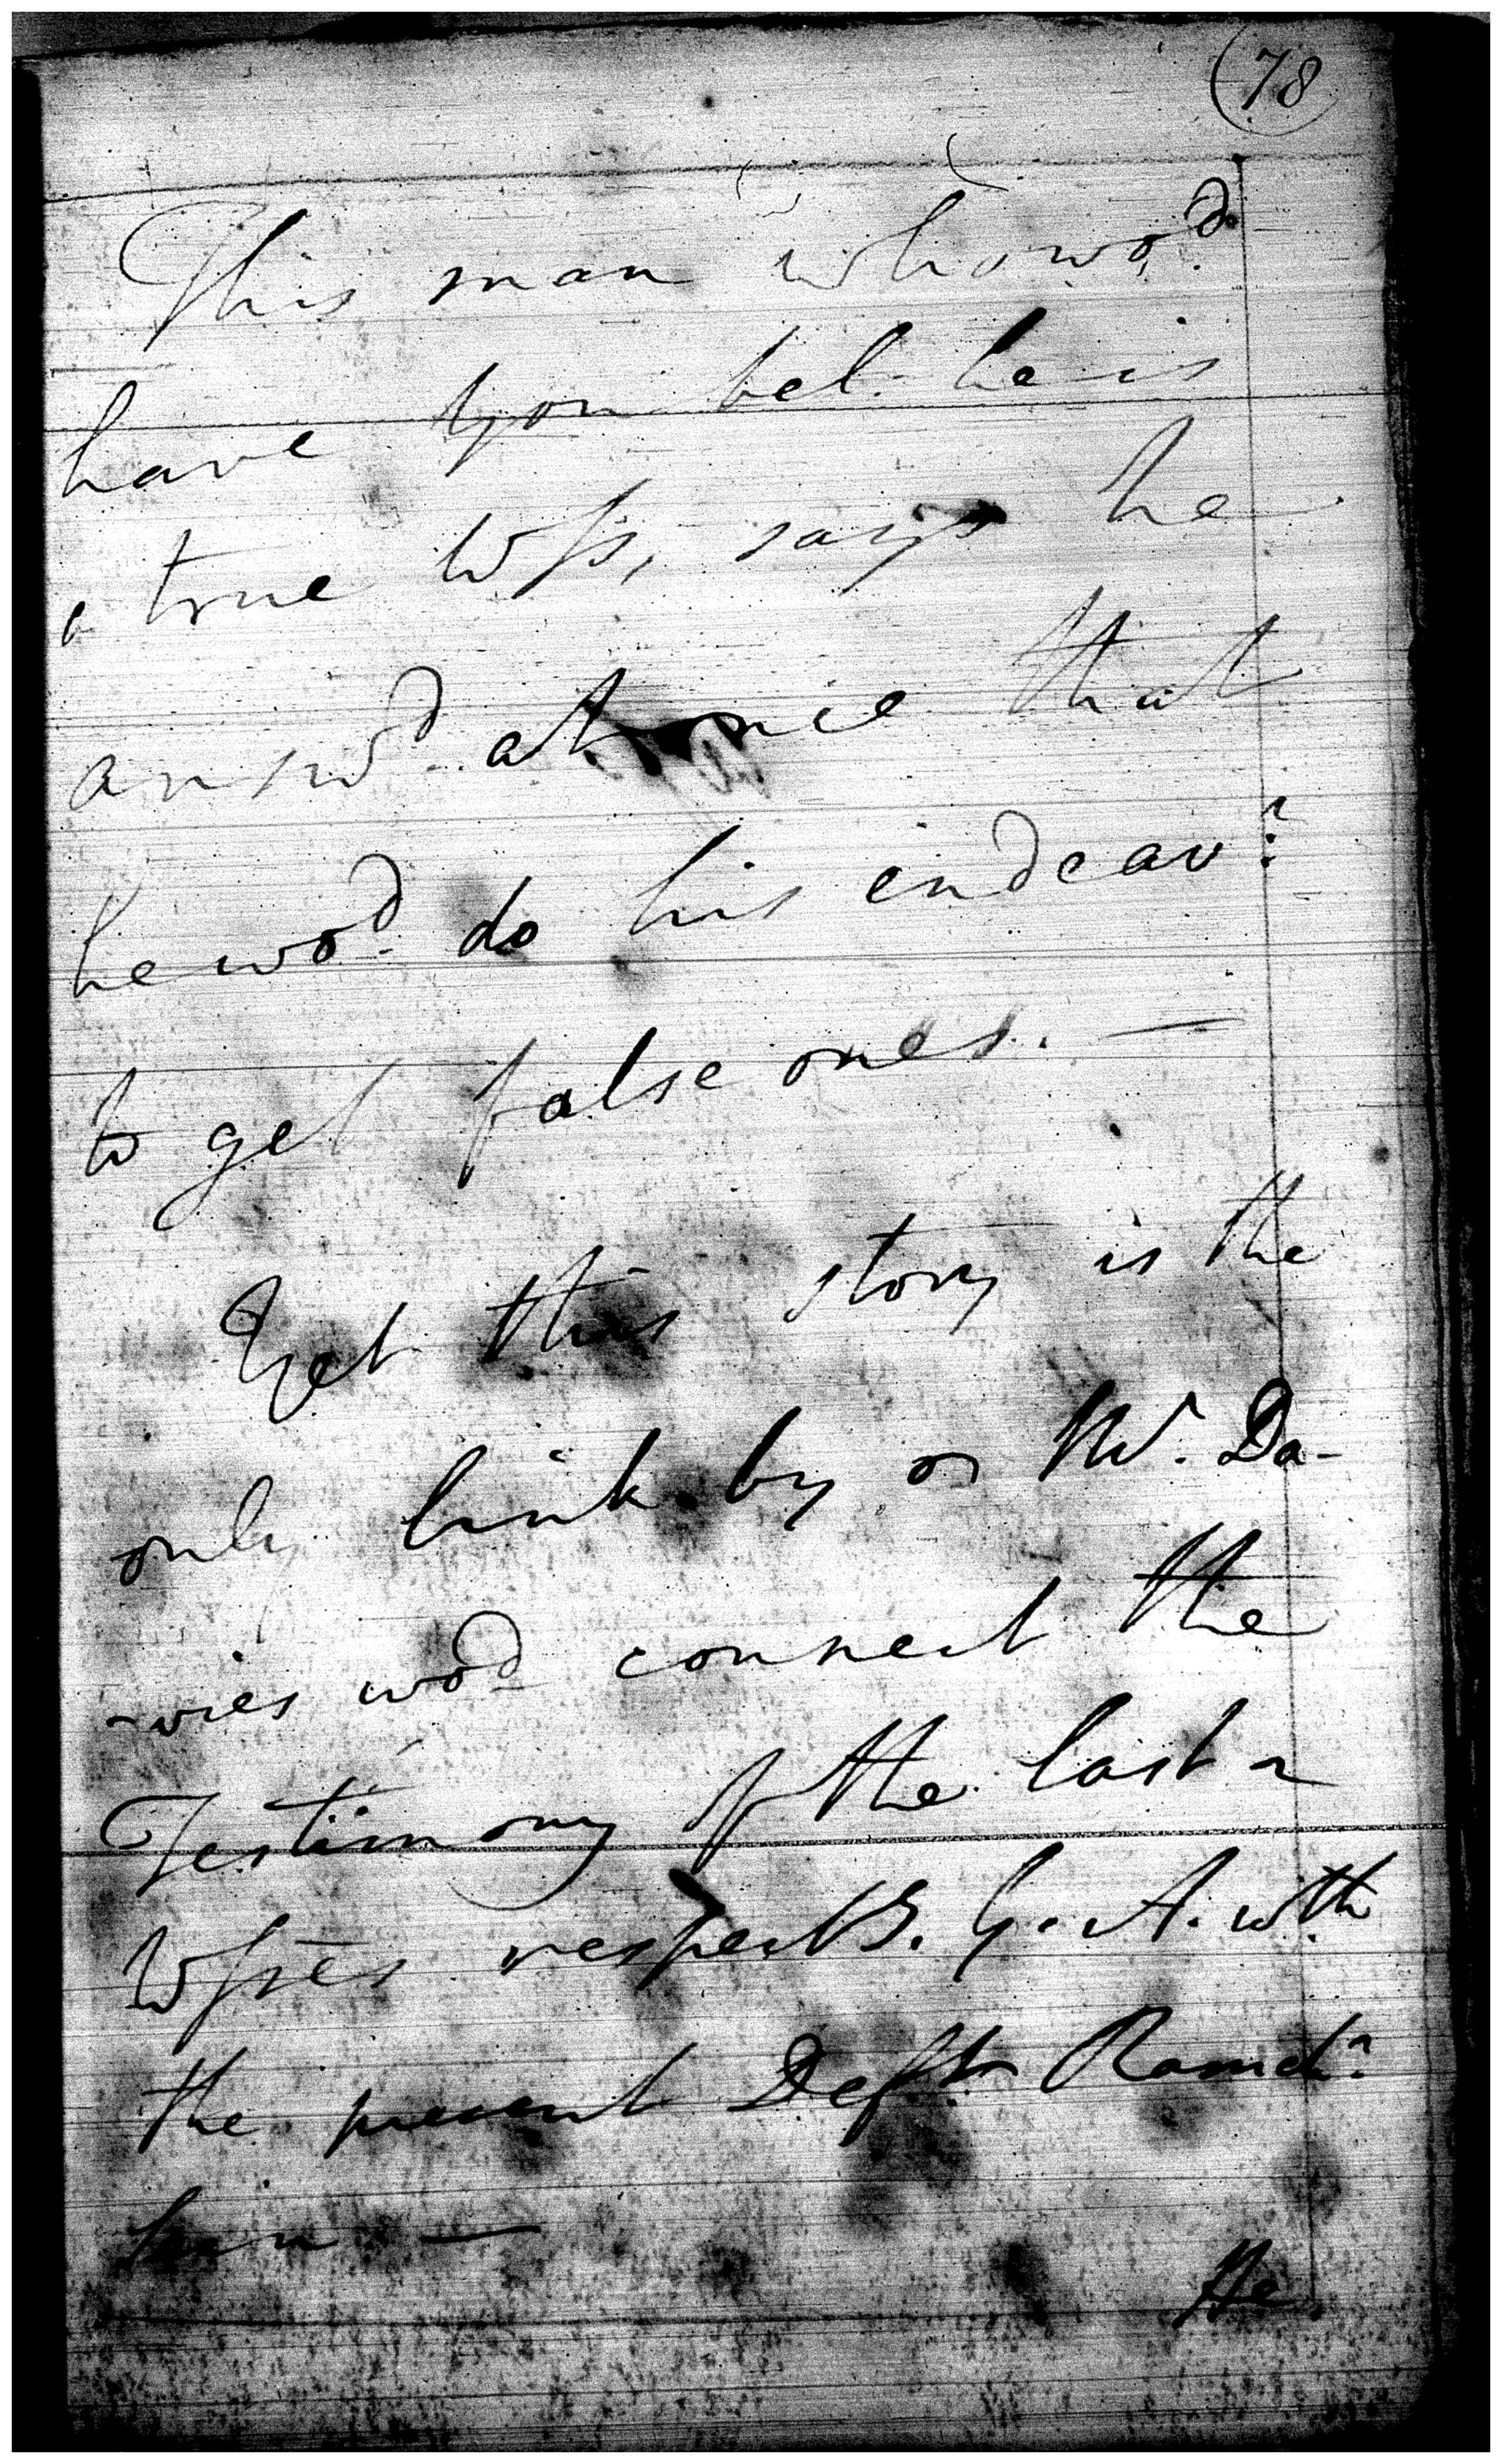 (78
This man who wod.
have you bel. he is
a true Wss, says he
answd. at once that
he wod. do his endeavr.
to get false ones. —
Yet this story is the
only link by wh Mr. Da-
-vies wod. connect the
Testimony of the last 2
Wsses respectg. G. A. wth.
the present Defts Ramchn.
Sein —
He